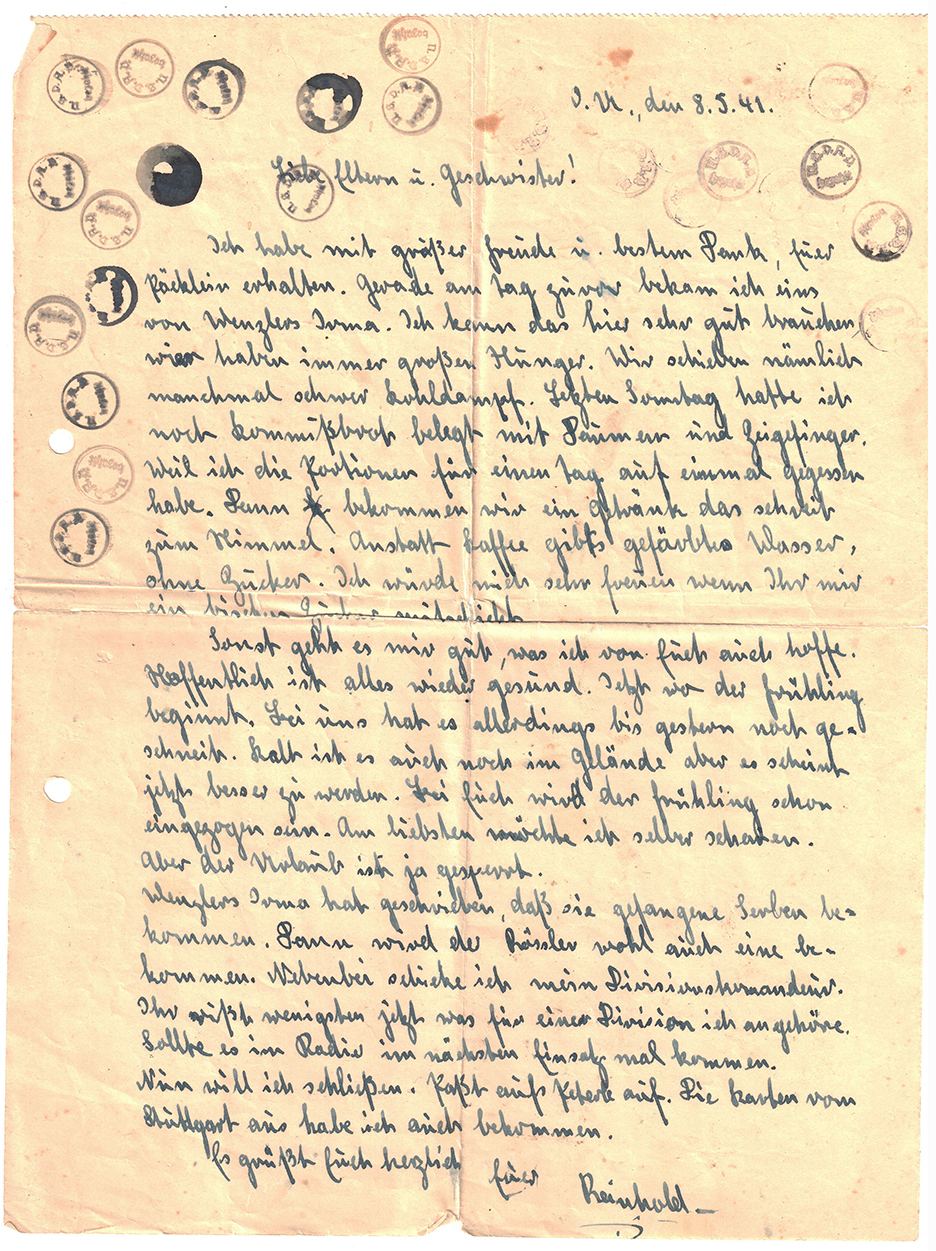 O.U., den 8.5.41.
Liebe Eltern u. Geschwister!
Ich habe mit größer Freude u. bestem Dank, Euer
Päcklein erhalten. Gerade am Tag zuvor bekam ich eins
von Wenzlers Irma. Ich kann das hier sehr gut brauchen,
wier haben immer großen Hunger. Wir schieben nämlich
manchmal schwer Kohldampf. Letzten Sonntag hatte ich
noch Kommißbrot belegt mit Daumen und Zeigefinger.
Weil ich die Portionen für einen Tag auf einmal gegessen
habe. Dann bekommen wir ein Getränk das schreit
zum Himmel. Anstatt Kaffee gibt's gefärbtes Wasser,
ohne Zucker. Ich würde mich sehr freuen wenn Ihr mir
ein bischen Zucker mitschickt
Sonst geht es mir gut, was ich von Euch auch hoffe.
Hoffentlich ist alles wieder gesund. Jetzt wo der Frühling
beginnt. Bei uns hat es allerdings bis gestern noch ge-
schneit. Kalt ist es auch noch im Gelände aber es scheint
jetzt besser zu werden. Bei Euch wird der Frühling schon
eingezogen sein. Am liebsten möchte ich selber schauen.
Aber der Urlaub ist ja gesperrt.
Wenzlers Irma hat geschrieben, daß sie gefangene Serben be-
kommen. Dann wird der Rössler wohl auch eine be-
kommen. Nebenbei schicke ich mein Divisionskomandeur.
Ihr wißt wenigsten jetzt was für einer Division ich angehöre.
Sollte es im Radio im nächsten Einsatz mal kommen.
Nun will ich schließen. Paßt aufs Peterle auf. Die Karten vom
Stuttgart aus habe ich auch bekommen.
Es grüßt Euch herzlich Euer
Reinhold